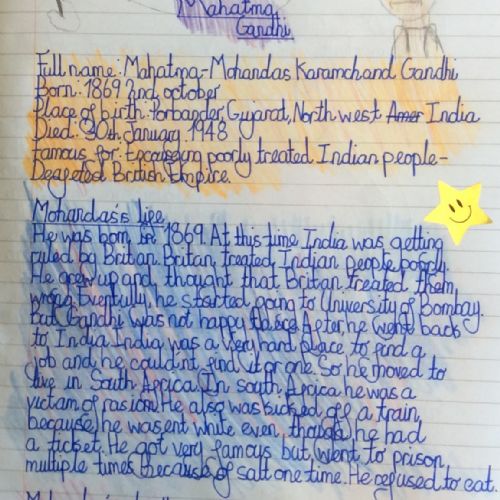 Mahatma
Gandhi
Full name: Mahatma-Mohandas Karamchand Gandhi
Born: 1869 2nd october
Place of birth: Porbander, Gujarat, North west Amer India
Died: 30th January 1948
Famous for: Encouraging poorly treated Indian people-
Degeated British Empire.
Mohandas's life
He was born in 1869. At this time India was getting
ruled by Britan. Britan treated Indian people poporly.
He grew up and thought that Britan treated them
wrong. Eventfully, he started going to University of Bombay.
But Gandhi was not happy there. After, he went back
to India. India was a very hard place to find a
job and he couldn't find it or one. So he moved to
live in South Africa. In south Africa he was a
victam of rasiom. He also was kicked off a train,
because, he wasent white even, though, he had
a ticket. He got very famous but, went to prison
multiple times. Because of salt one time. He refused to eat.